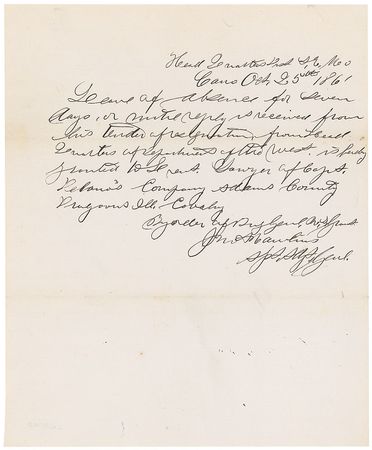 Head Quarters Dist S.E. Mo
Cairo Oct 25th 1861
Leave of absence for seven
days, or until reply is received from
his tender of resignation, from Head
Quarters of department of the West, is hereby
granted to Lieut. Sawyer of Capt.
Company Adams County
Dragoons Ills. Cavalry
By order of Brig Genl. U.S. Grant
Jno A Rawlins
A.A. Genl.